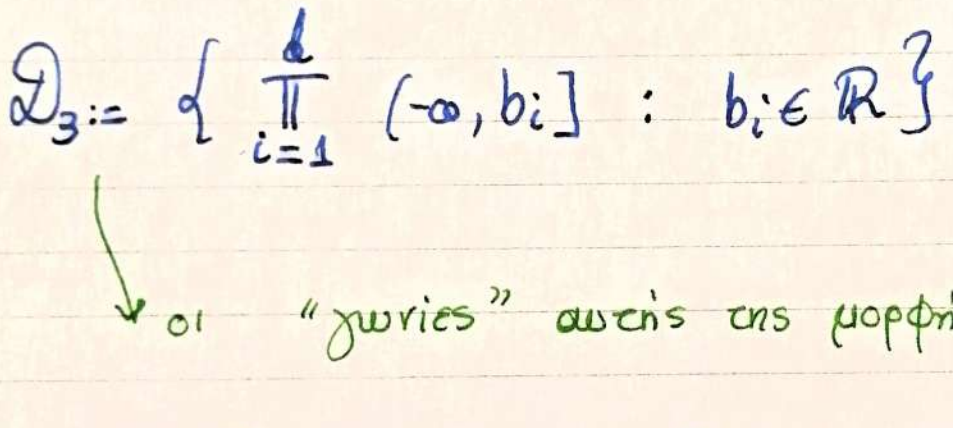 𝒟₃ := { ∏_{i=1}^{d} (-∞, bᵢ] : bᵢ ∈ ℝ }
οι "γωνίες" αυτής της μορφή